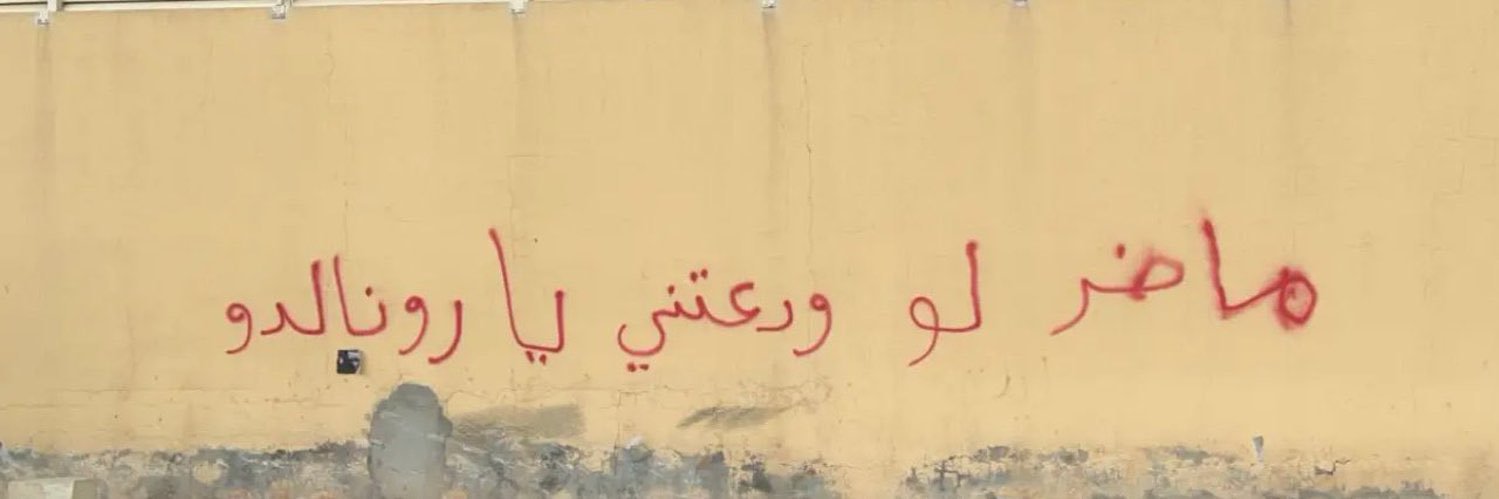 ماضر لو ودعتني يا رونالدو